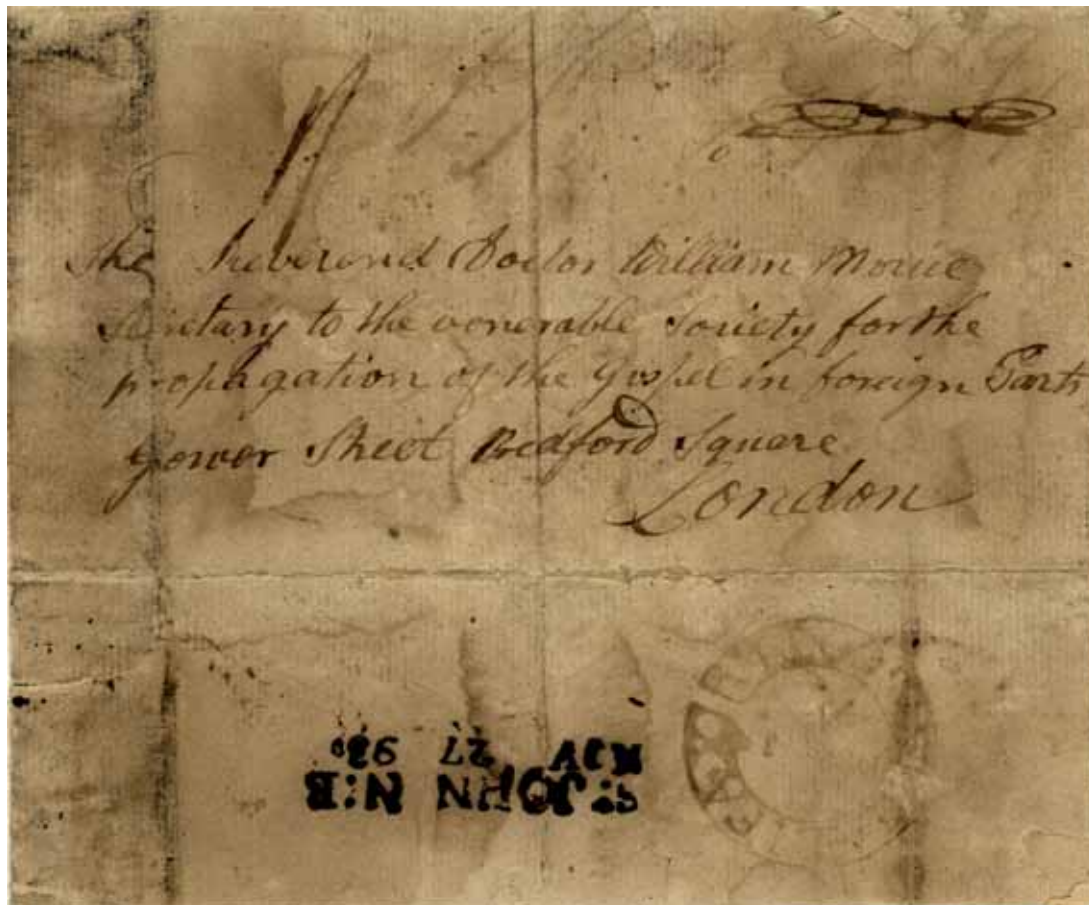 The Reverend Doctor William Morice
Secretary to the venerable Society for the
propagation of the Gospel in foreign Parts
Gower Street Bedford Square
London
St JOHN N:B
NOV 27